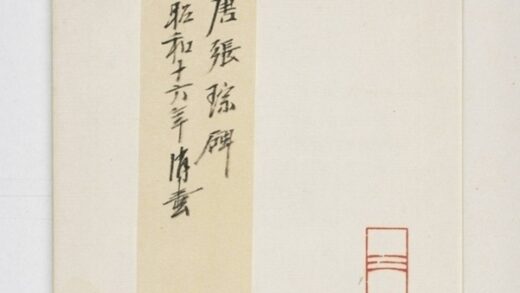 唐張琮碑
昭和十六年